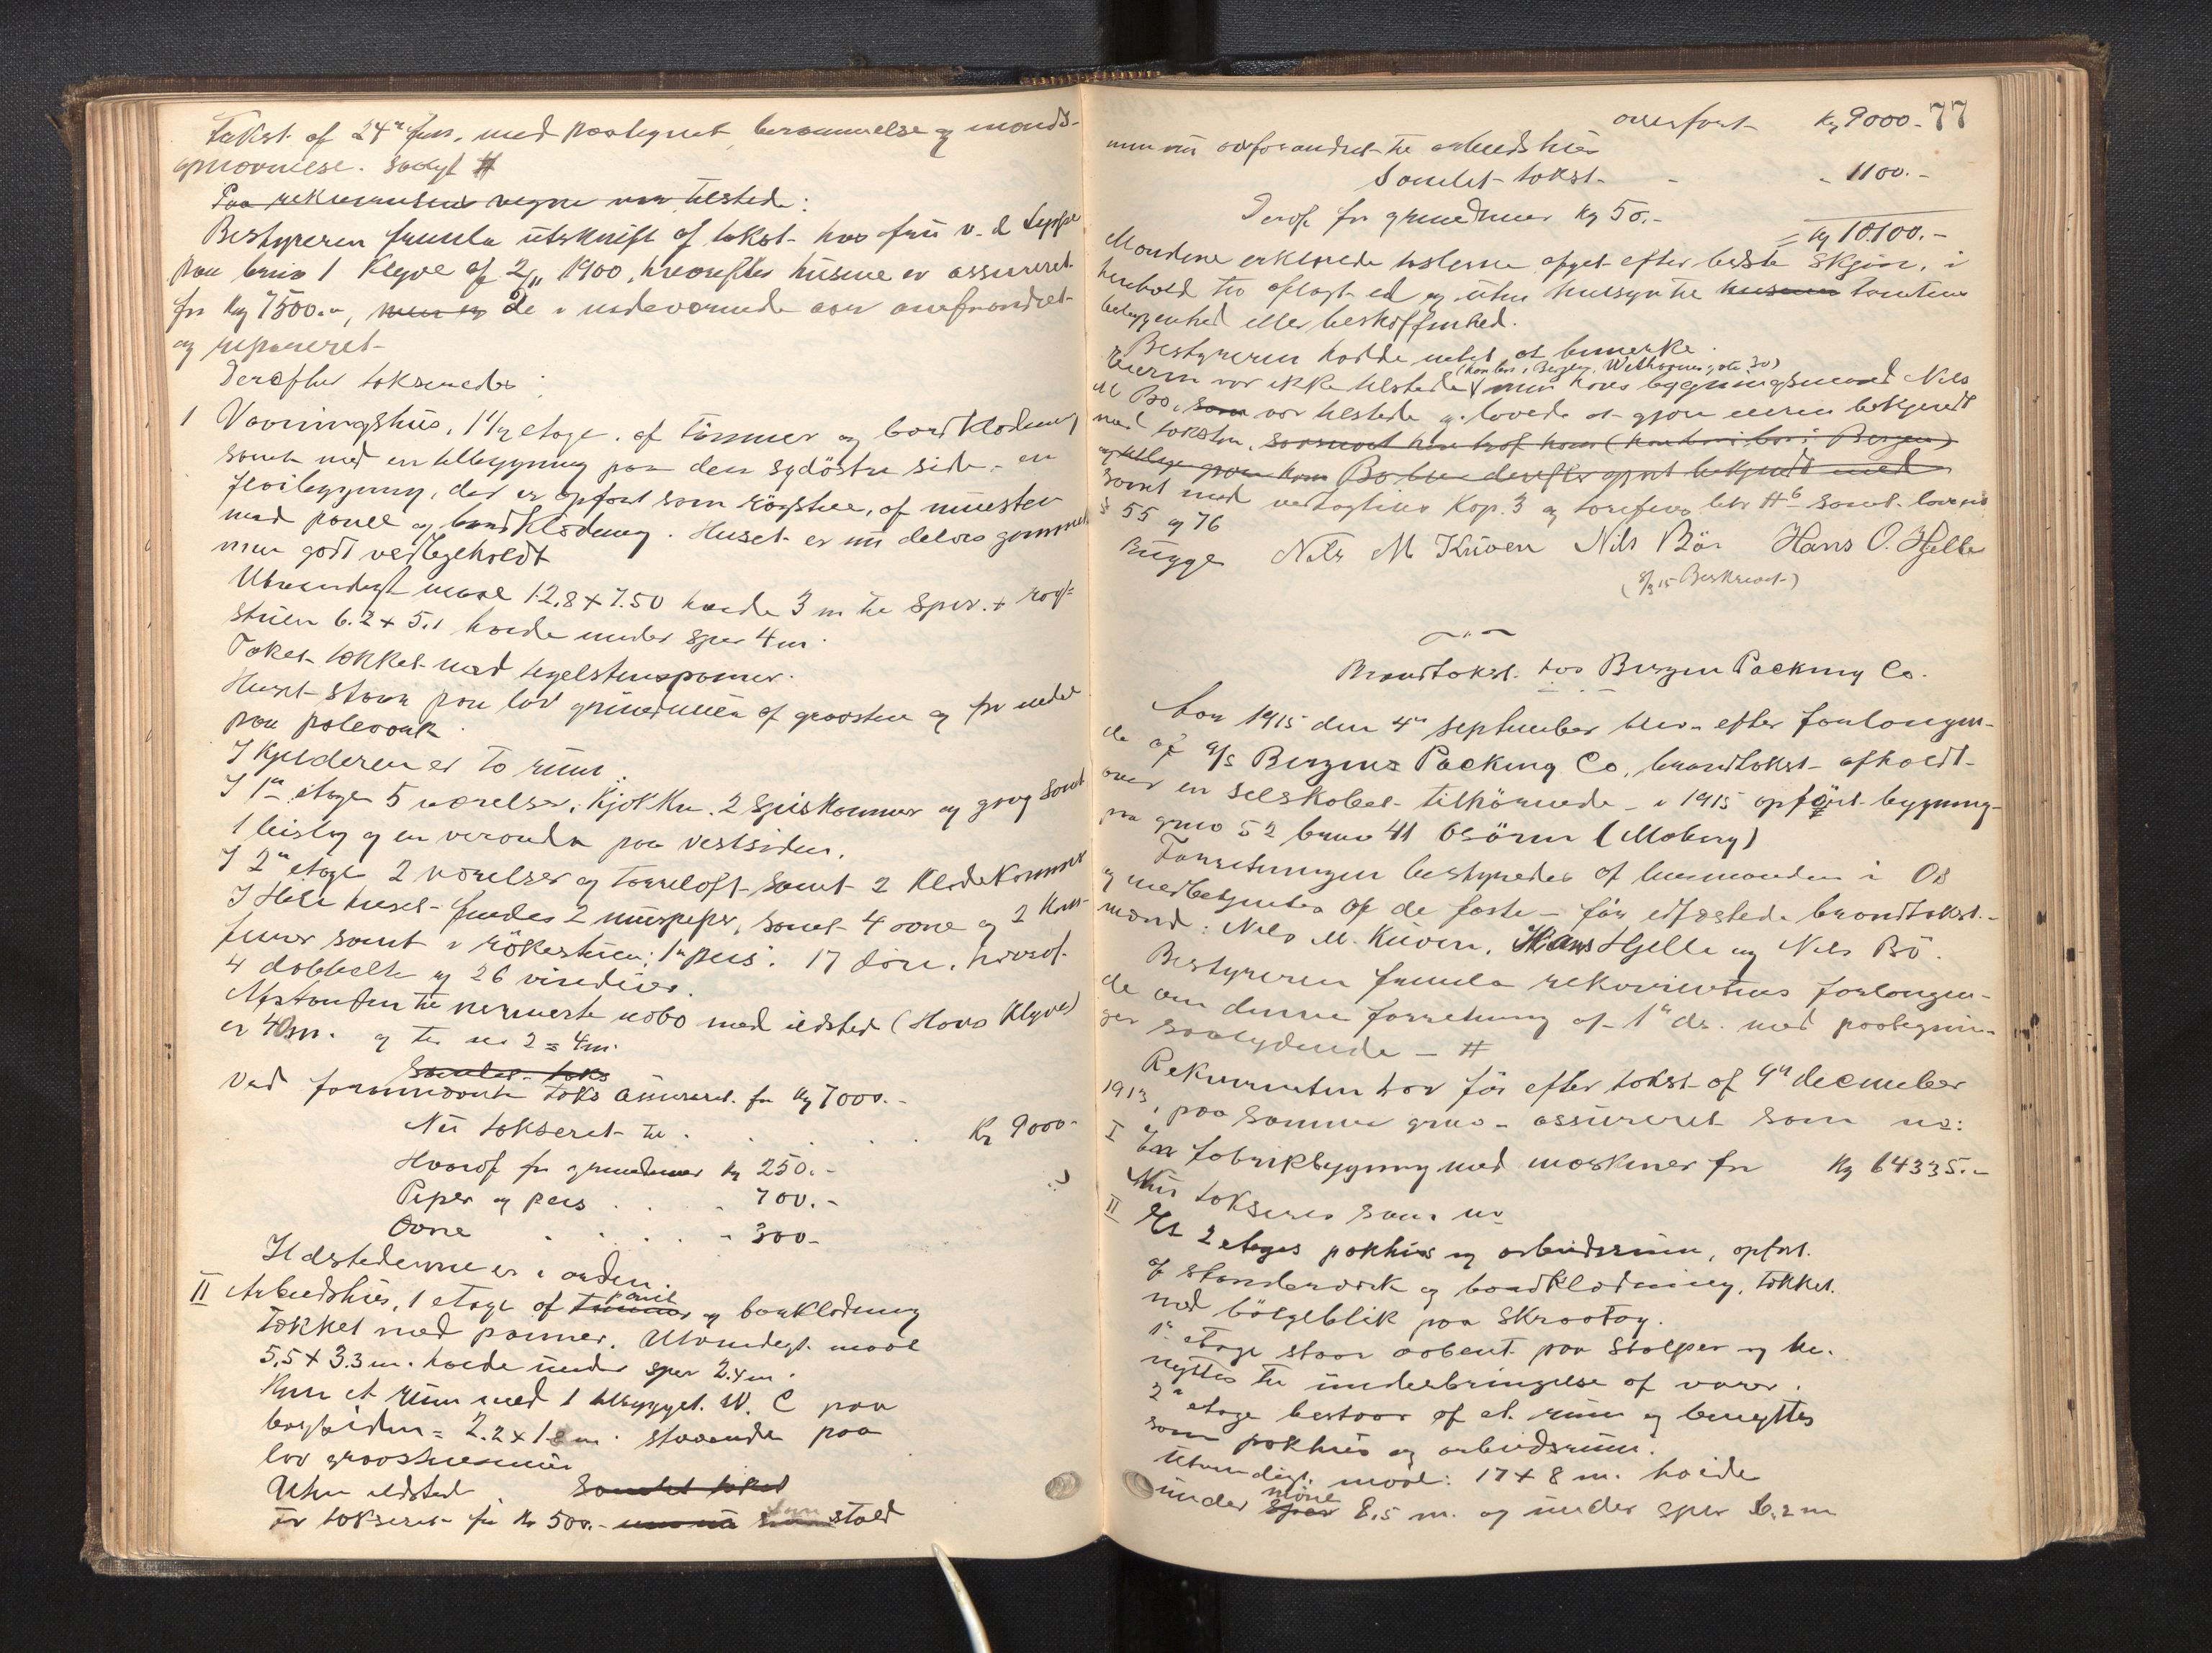 Takst af 24de juni, med paategnet berammelse og mænds-
opnævnelse. saalydt #
Paa rekvirentens vegne var tilstede:
Bestyreren fremla utskrift af takst hos fru v. d. Lippe
paa bruk 1 Klyve af 2/11 1900, hvorefter husene er assureret
for Kr 7500.-, men er De i mellemværende aar ombforandret
og repareret
Derefter takseredes:
1 Vaaningshus, 1 1/2 etage, af tømmer og bordklædning
samt med en tilbygning paa den sydöstre side, en
flöibygning, der er opført som røgstue, af
med panel og bordklædning. Huset er nu delvis gammelt
men godt vedlegeholdt
Utvendigt maal 12.8 + 7.50 høide 3 m til sper. + røg-
stuen 6.2 + 5.1 høide under sper 4 m.
Taket tækket med teglstenspanner.
Huset staar paa lav grundmur af graasten og for endel
paa pæleværk.
I Kjelderen er to rum.
I 1ste etage 5 værelser, kjøkken, 2 spiskammer og gang samt
1 bislag og en veranda paa vestsiden.
I 2den etage 2 værelser og tørreloft samt 2 klædekammer
I Hele huset findes 2 murpiper, samt 4 ovne og 2 Kom-
furer samt i røkestuen: 1 peis. 17 døre, hvoraf
4 dobbelte og 26 vinduer.
Afstanden til nærmeste nabo med ildsted (Hans Klyve)
er 40m. og til no 2 = 4m.
Samlet taks
Ved forannævnte taks assureret for Kr 7000.-
Nu takseret til . . . . . Kr 9000-
Hvoraf for grundmur Kr 250.-
Piper og peis . . . - 700.-
Ovne . . . . - 300-
Ildstederne er i orden.
II Arbeidshus, 1 etage af tømmer panel og bordklædning
Tækket med panner. Utvendigt maal
5.5 + 3.3 m. høide under sper 2.4 m.
Kun et rum med 1 tilbygget W. C paa
bagsiden = 2.2 x 1.8 m. staaende paa
lav graastensmur
Uten ildsted Samlet takst
Er takseret for Kr 500.- men nu som som stald
overført Kr 9000.- 77
men nu ombforandret til arbeidshus
Samlet takst - - 1100.-
Deraf for grundmur Kr 50.-
= Kr 10100.-
Mændene erklærede taksterne afgit efter bedste skjøn, i
henhold til aflagt ed og uten hensyn til husenes tomtens
beliggenhed eller beskaffenhed.
Bestyreren hadde intet at bemerke.
(han bor i Bergen, Welhavensgate 30)
Eieren var ikke tilstede men hans bygningsmand Nils
M Bø, som var tilstede og lovede at gjøre eieren bekjendt
med taksten, saasnart han traf ham (han bor i Bergen)
Bø blev derefter gjort bekjendt med
samt med vedtægtens Kap. 3 og tarifens litr H 6 samt lovens
§ 55 og 76
Bugge Nils M Kuven Nils Bø Hans O. Hjelle
(8/9 15 Beskrevet)
Brandtakst hos Bergen Packing Co.
Aar 1915 den 4de september blev efter forlangen-
de af A/S Bergens Packing Co, brandtakst afholdt
over en selskabet tilhørende i 1915 opført bygning
paa gno 52 bruno 41 Osøren (Moberg)
Forretningen bestyredes af lensmanden i Os
og medbetjentes af de faste - før edfæstede brandtakst-
mænd: Nils M. Kuven, Hans Hjelle og Nils Bø.
Bestyreren fremla rekvirentens forlangen-
de om denne forretning af 1ste ds. med paategnin-
ger saalydende - #
Rekvirenten har før efter takst af 9de december
1913, paa samme gno - assureret som no:
I En fabrikbygning med maskiner for Kr 64335.-
Nu takseres som no
II Et 2 etages pakhus og arbeidsrum, opført
af stenderværk og bordklædning, tækket
med bølgeblik paa Skraatag.
1ste etage staar aabent paa Stolper og be-
nyttes til underbringelse af varer.
2den etage bestaar af et rum og benyttes
som pakhus og arbeidsrum.
Utvendigt maal: 17 + 8 m. høide
under sper møne 8,5 m. og under sper 6.2 m